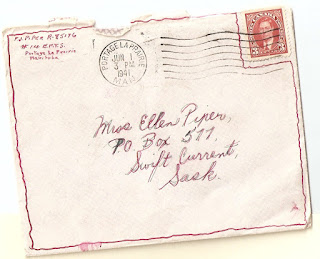 PIPER R-85176
#14 E.F.T.S.
Portage La Prairie
Manitoba
PORTAGE LA PRAIRIE
JUN 1
3 PM
1941
MAN.
CANADA
3
Miss Ellen Piper,
PO Box 577,
Swift Current,
Sask.